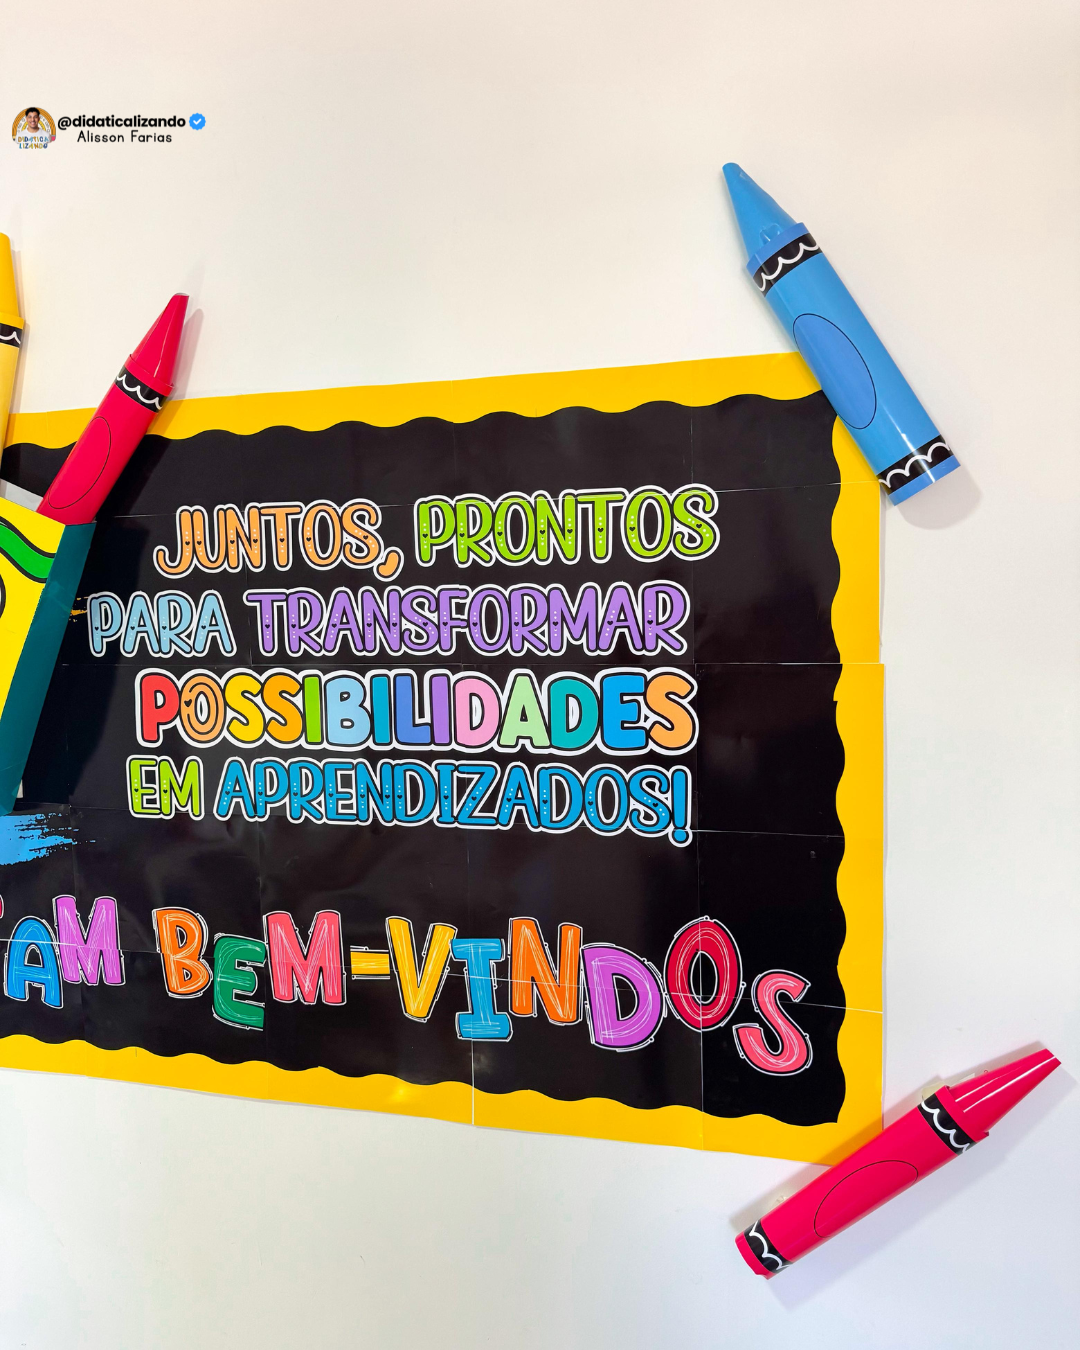 @didaticalizando
Alisson Farias
DIDATICA
LIZANDO
JUNTOS, PRONTOS
PARA TRANSFORMAR
POSSIBILIDADES
EM APRENDIZADOS!
AM BEM-VINDOS